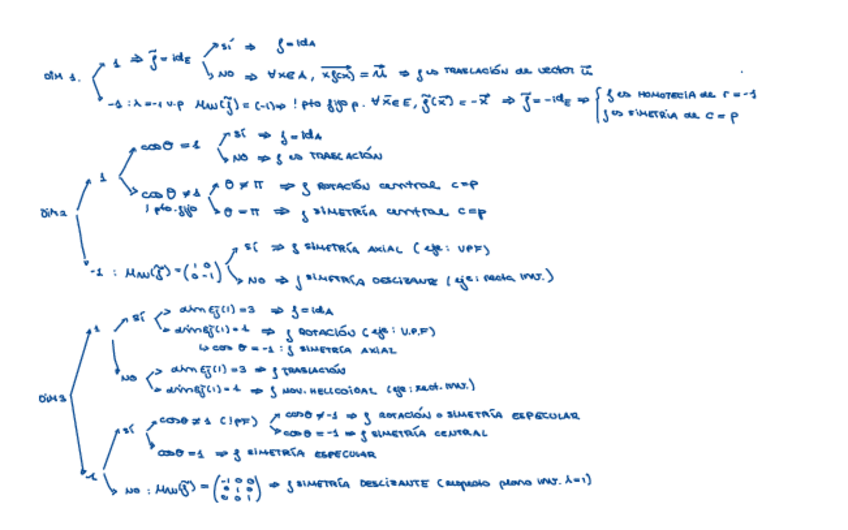 sí ⇒ f = id_A
DIM 1. 1 ⇒ f⃗ = id_E
NO ⇒ ∀x∈A, xf(x)⃗ = u⃗ ⇒ f es TRASLACIÓN de vector u⃗
-1 : λ=-1 v.p M_{B}(f⃗) = (-1) ⇒ ! pto fijo p. ∀x⃗∈E, f⃗(x⃗) = -x⃗ ⇒ f⃗ = -id_E ⇒ { f es HOMOTECIA de r = -1
f es SIMETRÍA de c = p
cos θ = 1 sí ⇒ f = id_A
NO ⇒ f es TRASLACIÓN
1
cos θ ≠ 1 θ ≠ π ⇒ f ROTACIÓN central c=p
! pto. fijo θ = π ⇒ f SIMETRÍA central c=p
DIM 2
sí ⇒ f SIMETRÍA AXIAL (eje: VPF)
-1 : (1 0
0 -1)
NO ⇒ f SIMETRÍA DESLIZANTE (eje: recta inv.)
sí dim E_f⃗(1) = 3 ⇒ f = id_A
1 dim E_f⃗(1) = 1 ⇒ f ROTACIÓN (eje: V.P.F)
↳ cos θ = -1 : f SIMETRÍA AXIAL
NO dim E_f⃗(1) = 3 ⇒ f TRASLACIÓN
dim E_f⃗(1) = 1 ⇒ f MOV. HELICOIDAL (eje: rect. inv.)
DIM 3
sí cos θ ≠ 1 (!PF) cos θ ≠ -1 ⇒ f ROTACIÓN o SIMETRÍA ESPECULAR
cos θ = -1 ⇒ f SIMETRÍA CENTRAL
cos θ = 1 ⇒ f SIMETRÍA ESPECULAR
-1
NO : (-1 0 0
0 1 0
0 0 1) ⇒ f SIMETRÍA DESLIZANTE (respecto plano inv. λ=1)